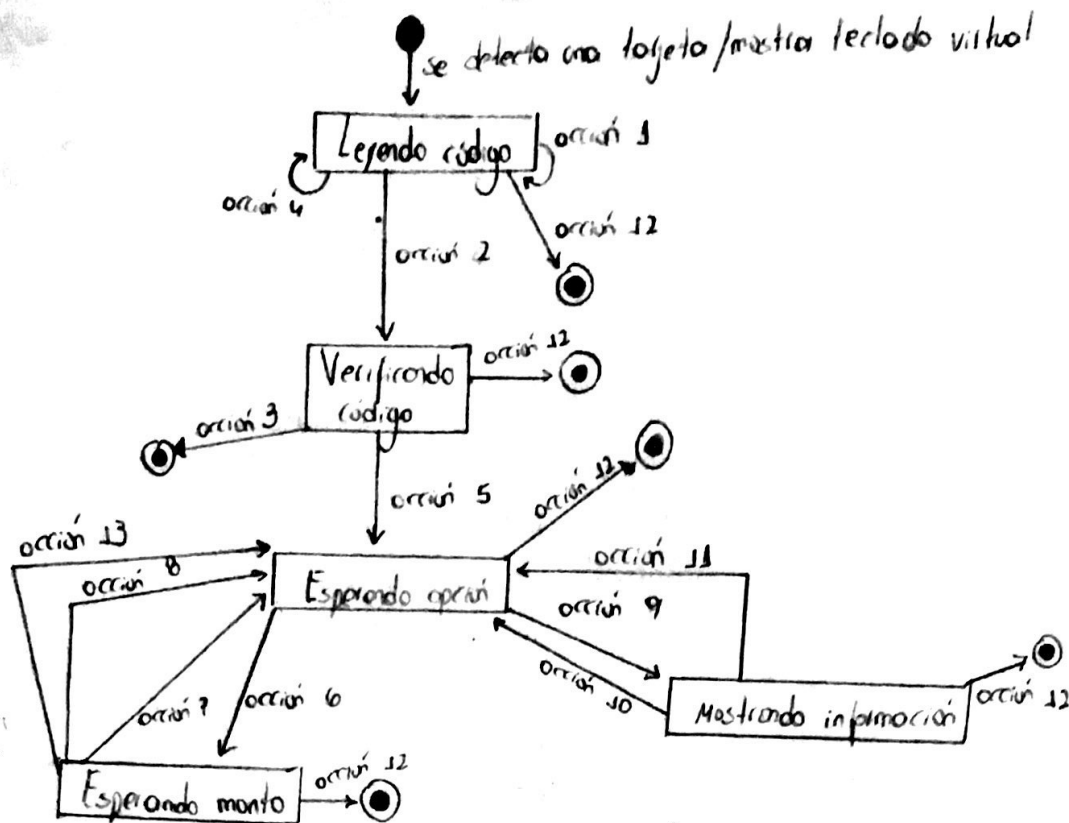 se detecta una tarjeta/mostrar teclado virtual
Leyendo código
acción 1
acción 4
acción 12
acción 2
acción 12
Verificando
código
acción 3
acción 5
acción 12
acción 13
acción 8
acción 11
Esperando opción
acción 9
acción 7
acción 6
acción 10
acción 12
Mostrando información
acción 12
Esperando monto